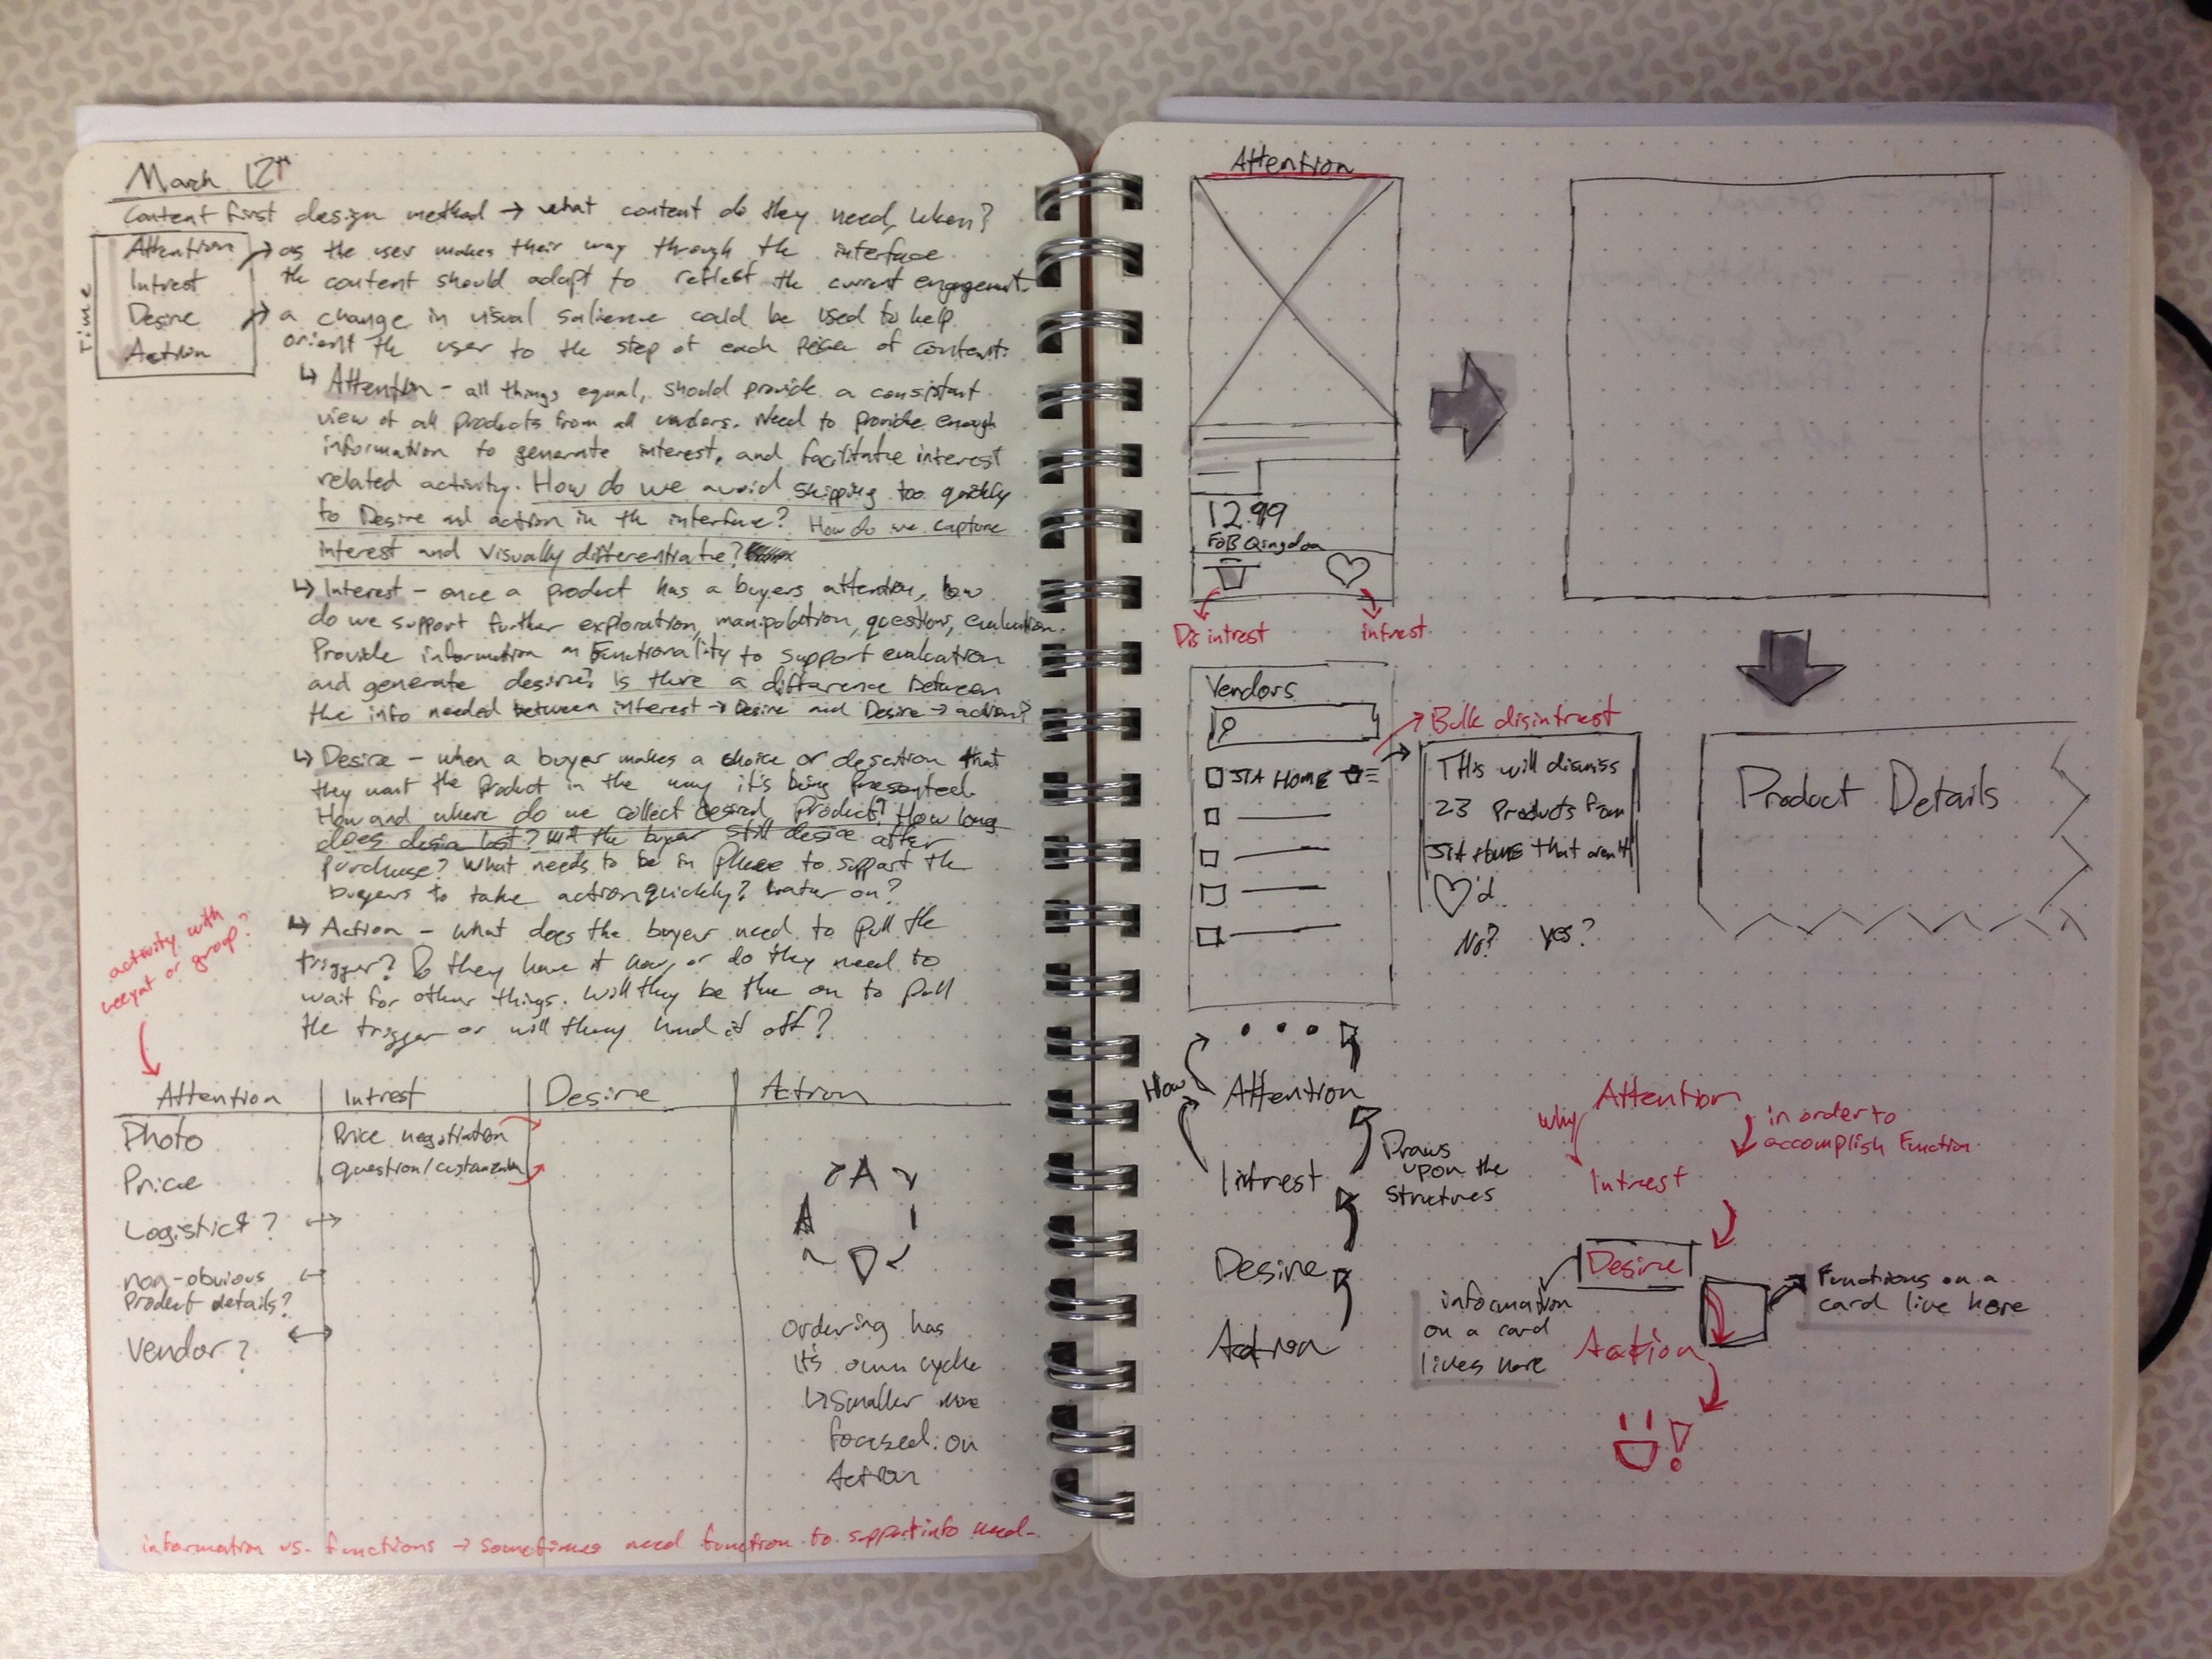 March 12th
Content first design method → what content do they need, when?
Time
Attention
Intrest
Desire
Action
→ as the user makes their way through the interface
the content should adapt to reflect the current engagement.
→ a change in visual salience could be used to help
orient the user to the step of each piece of content.
↳ Attention - all things equal, should provide a consistant
view of all products from all vendors. Need to provide enough
information to generate interest, and facilitate interest
related activity. How do we avoid skipping too quickly
to Desire and action in the interface? How do we capture
interest and visually differentiate?
↳ Interest - once a product has a buyers attention, how
do we support further exploration, manipulation, questions, evaluation.
Provide information or Functionality to support evaluation
and generate desire? Is there a difference between
the info needed between interest → Desire and Desire → action?
↳ Desire - when a buyer makes a choice or that
they want the Product in the way it's being Presented.
How and where do we collect desired products? How long
does desire last? Will the buyer still desire after
purchase? What needs to be in place to support the
buyers to take action quickly? Later on?
↳ Action - what does the buyer need to pull the
trigger? Do they have it now, or do they need to
wait for other things. Will they be the on to pull
the trigger or will they hand it off?
activity with
or group?
Attention
Intrest
Desire
Action
Photo
Price negotiation
Price
question/
Logistics?
non-obvious
Product details?
Vendor?
A
I
D
A
Ordering has
it's own cycle
↳ Smaller more
focused on
Action
information vs. functions → sometimes need function to support info need.
Attention
12.99
FOB Qingdoa
Disintrest
intrest
Vendors
JLA HOME
Bulk disintrest
This will dismiss
23 Products from
JLA HOME that aren't
♡'d.
No? yes?
Product Details
How
Attention
Intrest
Desire
Action
Draws
upon the
structures
Why
Attention
in order to
accomplish Function
Intrest
Desire
information
on a card
lives here
Functions on a
card live here
Action